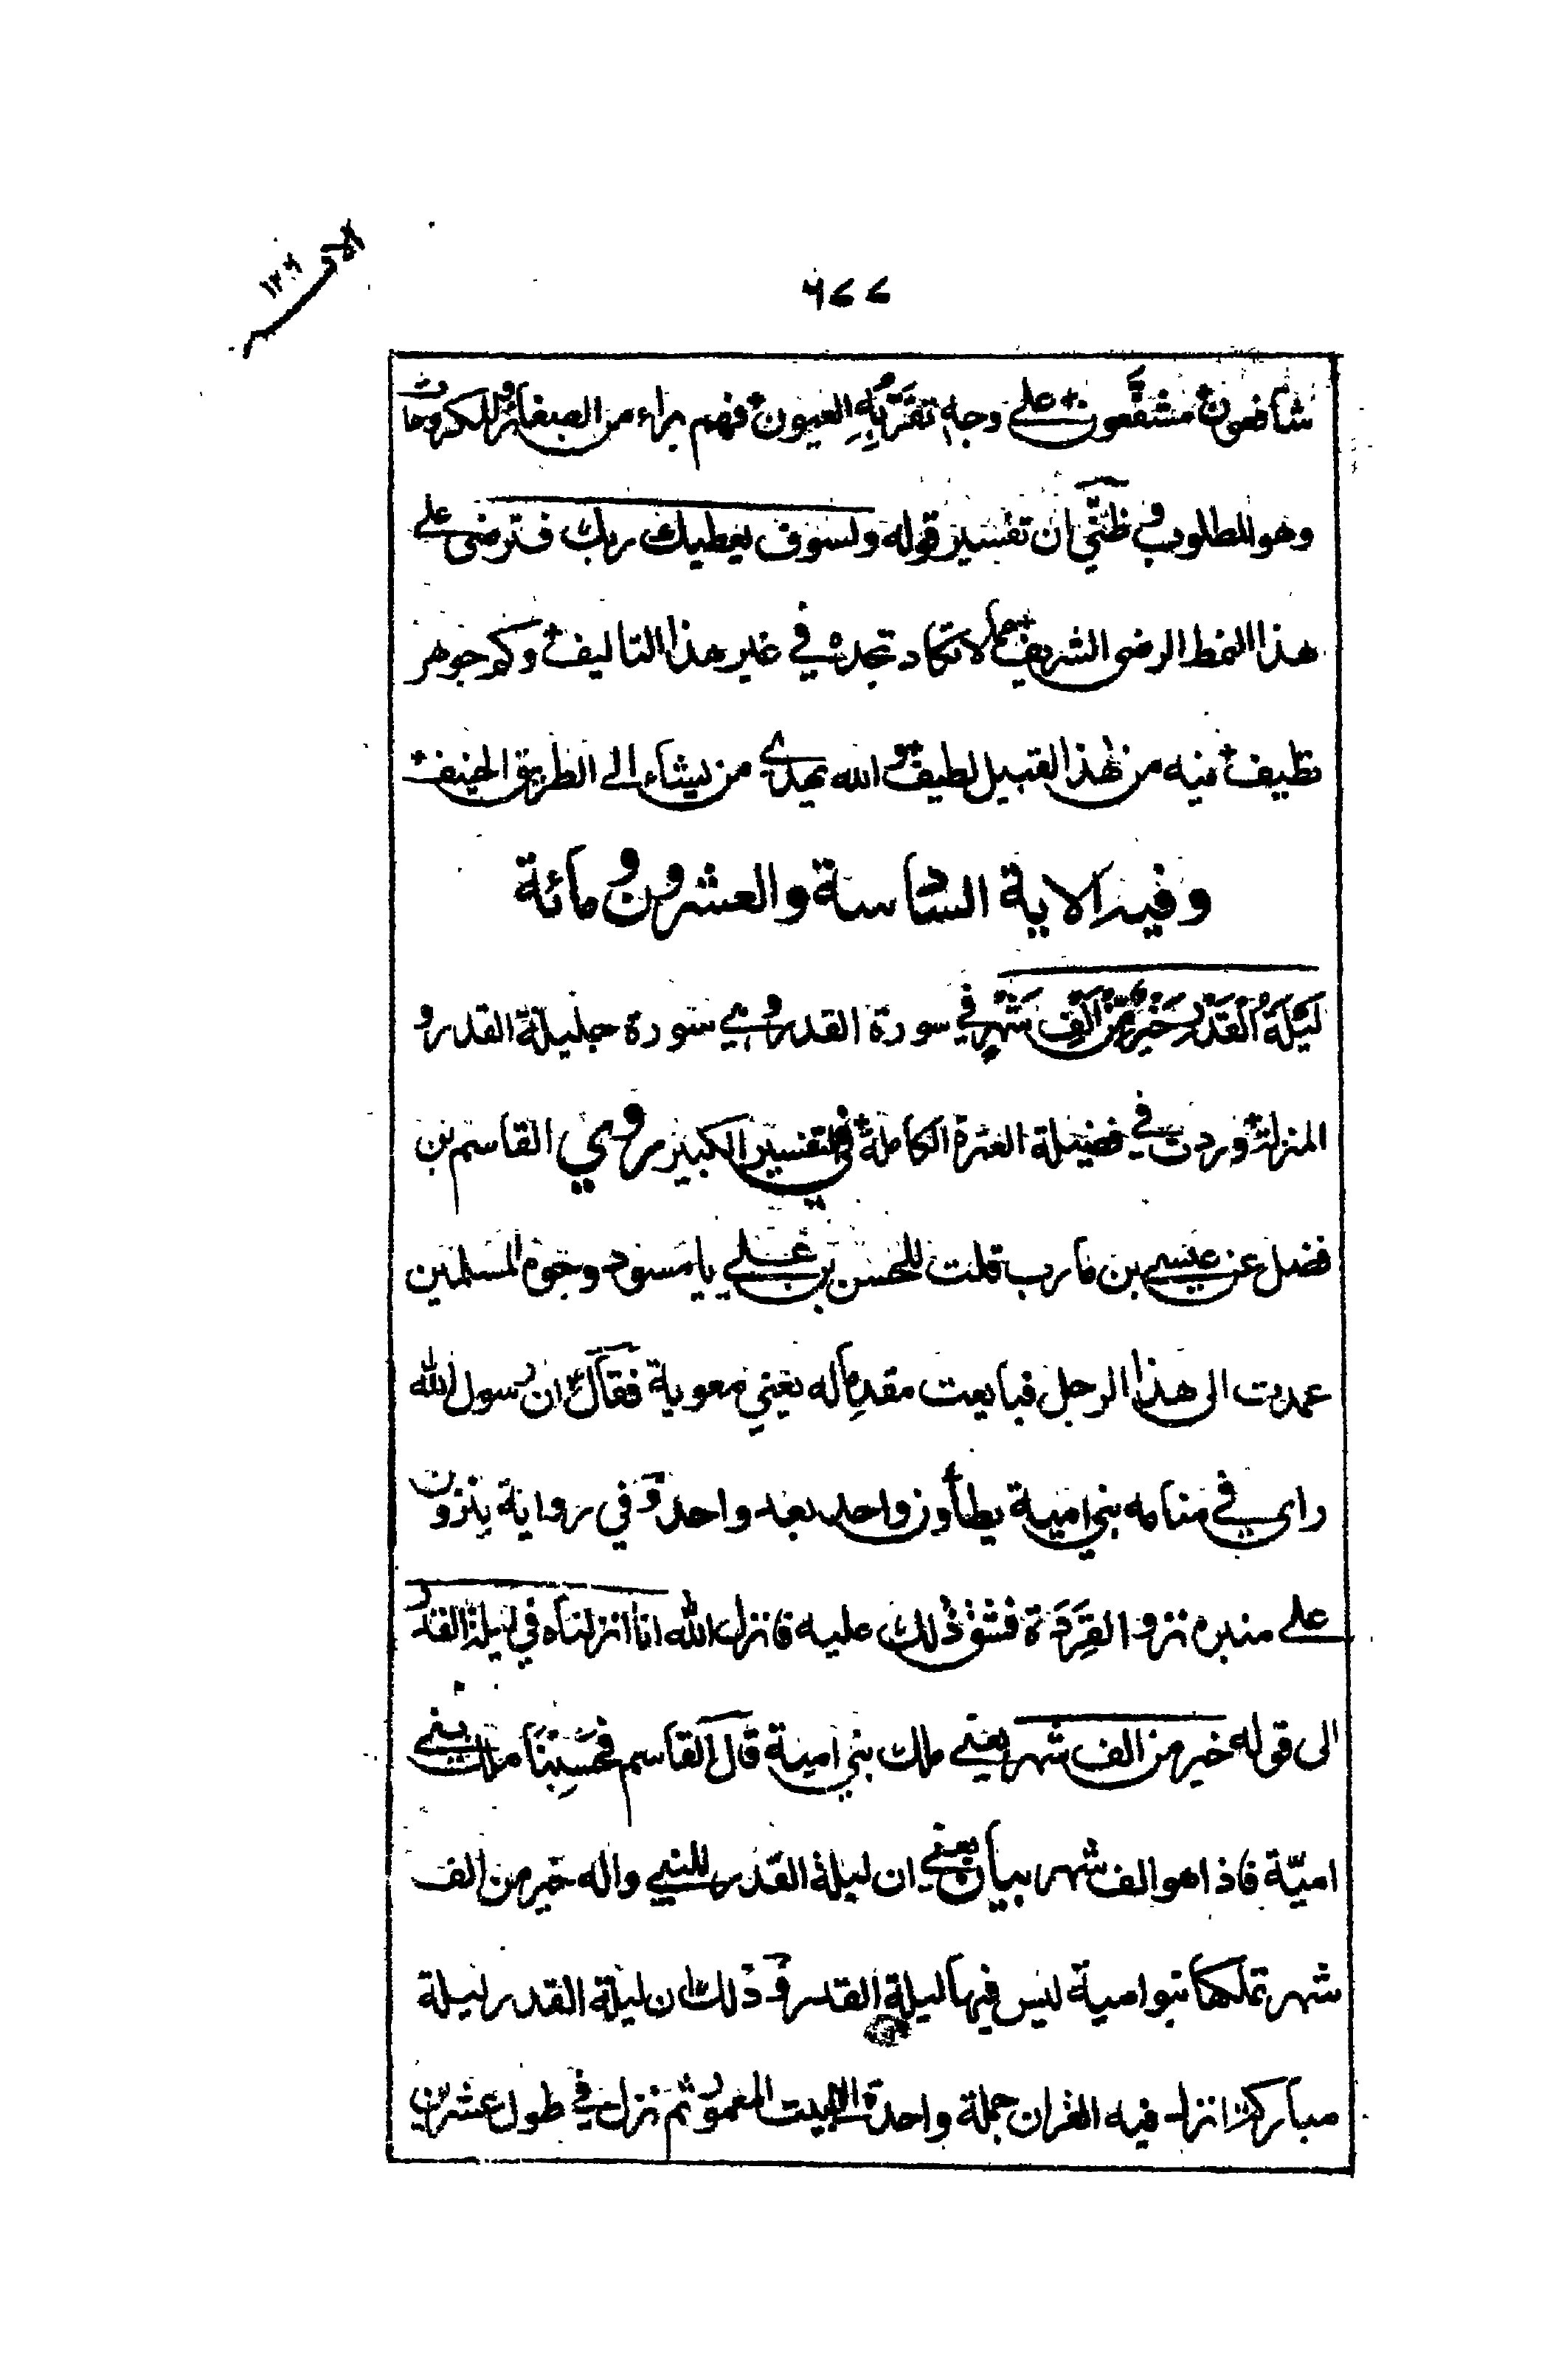 الآية ١٢٦
٦٧٧
شافعون مشفعون على وجه تقر به العيون فهم براء من الصغائر والمكروهات
وهو المطلوب وفي ظني ان تفسير قوله ولسوف يعطيك ربك فترضى على
هذا النمط الرضى الشريف مما لا تكاد تجده في غير هذا التاليف وكم جوهر
نظيف فيه من هذا القبيل لطيف والله يهدي من يشاء الى الطريق الحنيف
وفيه الاية السادسة والعشرون ومائة
لَيْلَةُ الْقَدْرِ خَيْرٌ مِّنْ اَلْفِ شَهْرٍ في سورة القدر وهي سورة جليلة القدر و
المنزلة وردت في فضيلة العترة الكاملة في التفسير الكبير روي القاسم بن
فضل عن عيسى بن مارب قلت للحسن بن علي يا مسود وجوه المسلمين
عمدت الى هذا الرجل فبايعت مقدما له يعني معوية فقال ان رسول الله
راى في منامه بني امية يطأون واحد بعد واحد وفي رواية ينزون
على منبره نزو القِرَدَة فشق ذلك عليه فانزل الله انا انزلناه في ليلة القدر
الى قوله خير من الف شهر يعني ملك بني امية قال القاسم فحسبنا ملك بني
اميّة فاذا هو الف شهر بيان يعني ان ليلة القدر للنبي واله خير من الف
شهر تملكها بنو امية ليس فيها ليلة القدر وذلك ان ليلة القدر ليلة
مباركة انزل فيه القران جملة واحدة الى البيت المعمور ثم نزل في طول عشرين